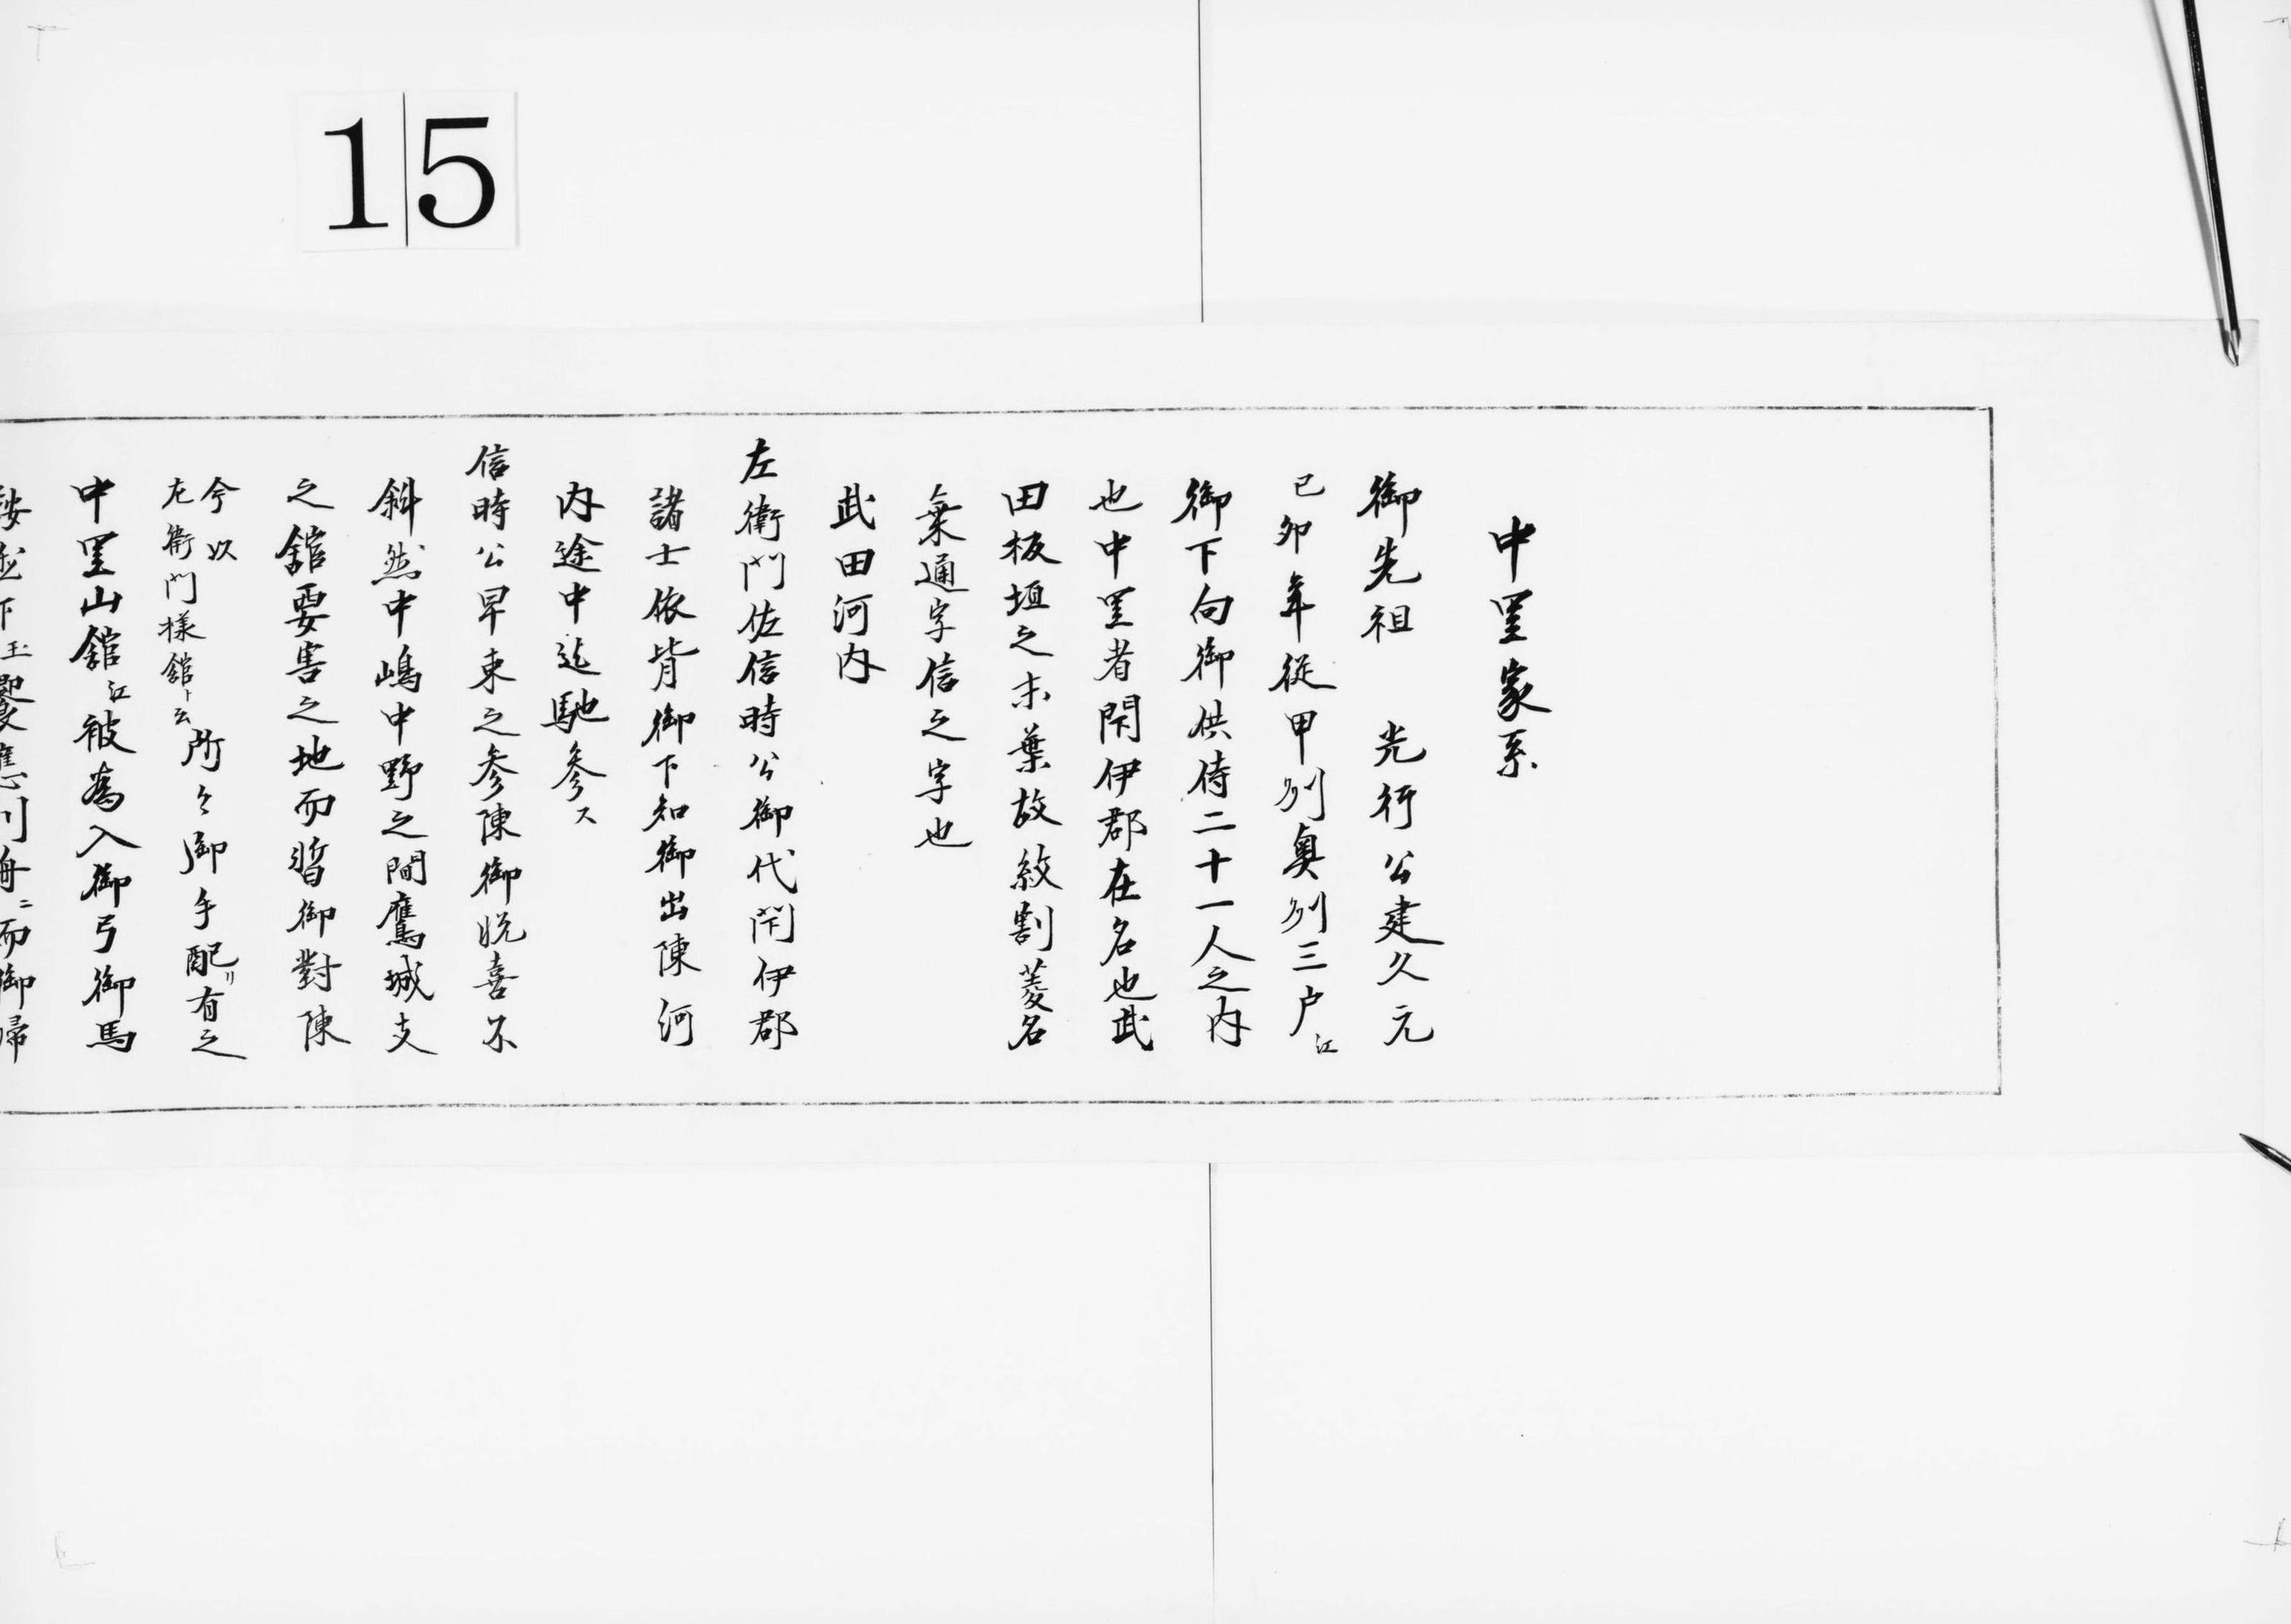 15
中里家系
御先祖　光行公建久元
己卯年従甲州奥州三戸江
御下向御供侍二十一人之内
也中里者閇伊郡在名也武
田板垣之末葉故紋割菱名
乗通字信之字也
武田河内
左衛門佐信時公御代閇伊郡
諸士依背御下知御出陳河
内途中迄馳参ス
信時公早束之参陳御悦喜不
斜然中嶋中野之間鷹城支
之舘要害之地而暫御對陳
今以
左衛門様舘ト云所々御手配リ有之
中里山舘江被為入御弓御馬
下玉饗應川舟ニ而御帰